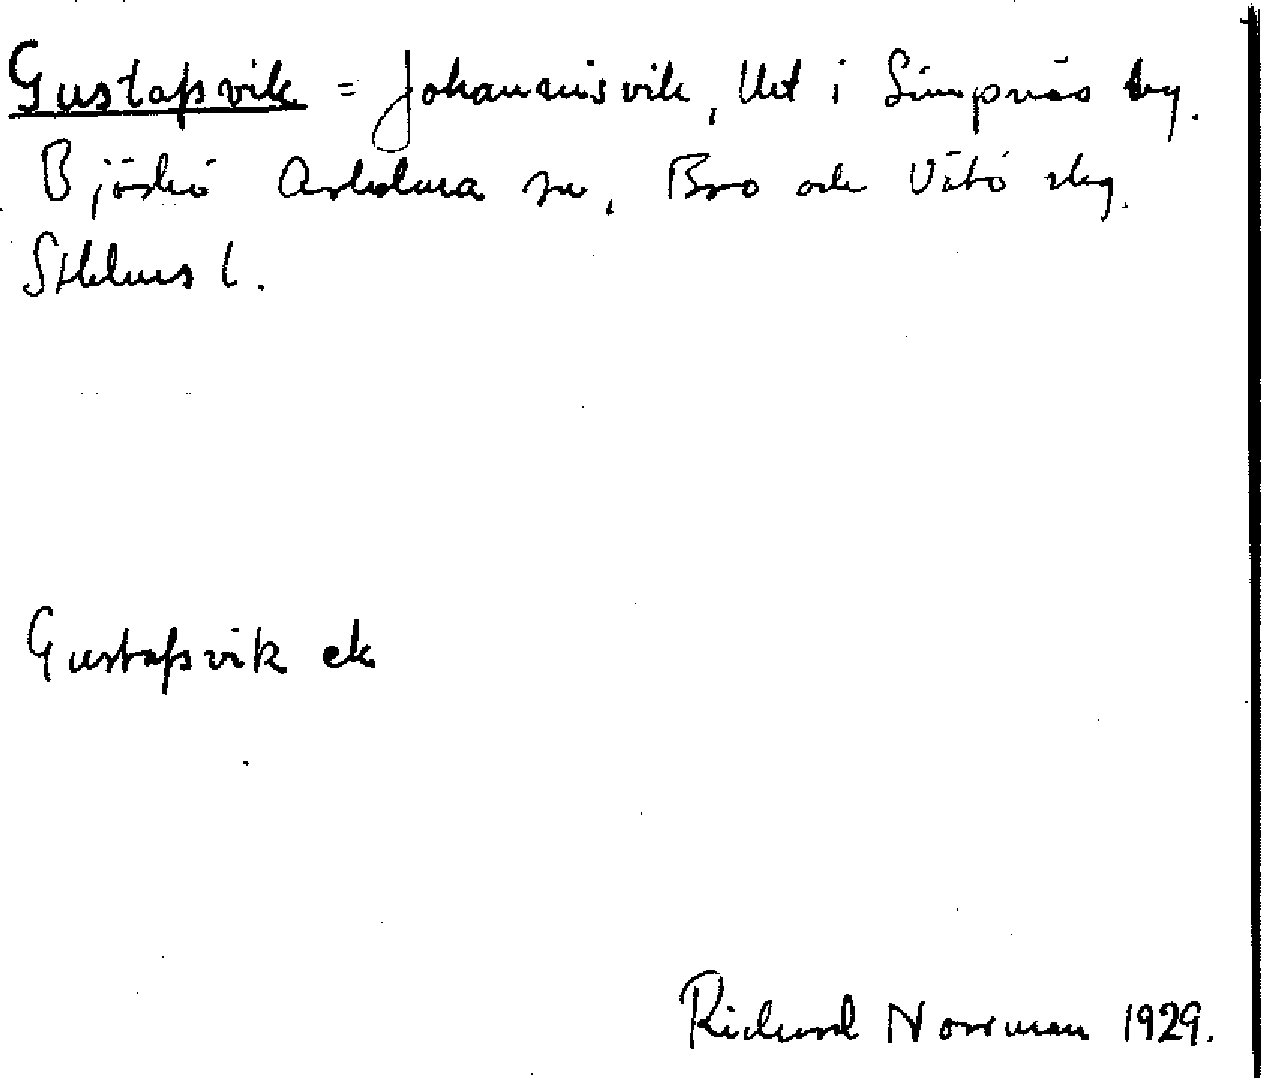 Gustafsvik = Johannisvik, Utt i Simpnäs by.
Björkö Arholma sn, Bro och Vätö skg.
Sthlms l.
Gustafsvik ek
Richard Norrman 1929.